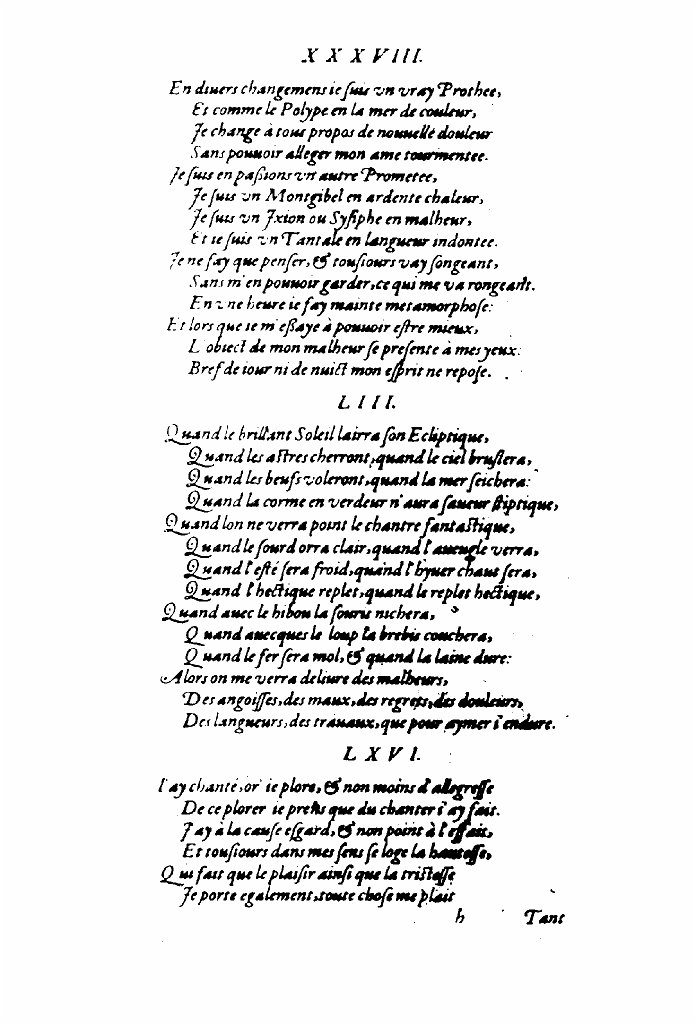 XXXVIII.
En diuers changemens ie ſuis vn vray Prothee,
Et comme le Polype en la mer de couleur,
Je change à tous propos de nouuelle douleur
Sans pouuoir alleger mon ame tourmentee.
Je ſuis en paſsions vn autre Prometee,
Je ſuis vn Montgibel en ardente chaleur,
Je ſuis vn Jxion ou Syſiphe en malheur,
Et ie ſuis vn Tantale en langueur indontee.
Je ne fay que penſer, & touſiours vay ſongeant,
Sans m'en pouuoir garder, ce qui me va rongeant.
En vne heure ie fay mainte metamorphoſe:
Et lors que ie m'eſſaye à pouuoir eſtre mieux,
L'obiect de mon malheur ſe preſente à mes yeux:
Bref de iour ni de nuict mon eſprit ne repoſe.
LIII.
Quand le brillant Soleil lairra ſon Ecliptique,
Quand les aſtres cherront, quand le ciel bruſlera,
Quand les beufs voleront, quand la mer ſeichera:
Quand la corme en verdeur n'aura ſaueur ſtiptique,
Quand lon ne verra point le chantre fantaſtique,
Quand le ſourd orra clair, quand l'aueugle verra,
Quand l'eſté ſera froid, quand l'hyuer chaut ſera,
Quand l'hectique replet, quand le replet hectique,
Quand auec le hibou la ſouris nichera,
Quand auecques le loup la brebis couchera,
Quand le fer ſera mol, & quand la laine dure:
Alors on me verra deliure des malheurs,
Des angoiſſes, des maux, des regrets, des douleurs,
Des langueurs, des trauaux, que pour aymer i'endure.
LXVI.
I'ay chanté, or' ie plore, & non moins d'allegreſſe
De ce plorer ie prens que du chanter i'ay fait.
J'ay à la cauſe eſgard, & non point à l'effait,
Et touſiours dans mes ſens ſe loge la hauteſſe,
Qui fait que le plaiſir ainſi que la triſteſſe
Je porte egalement, toute choſe me plait
h Tant